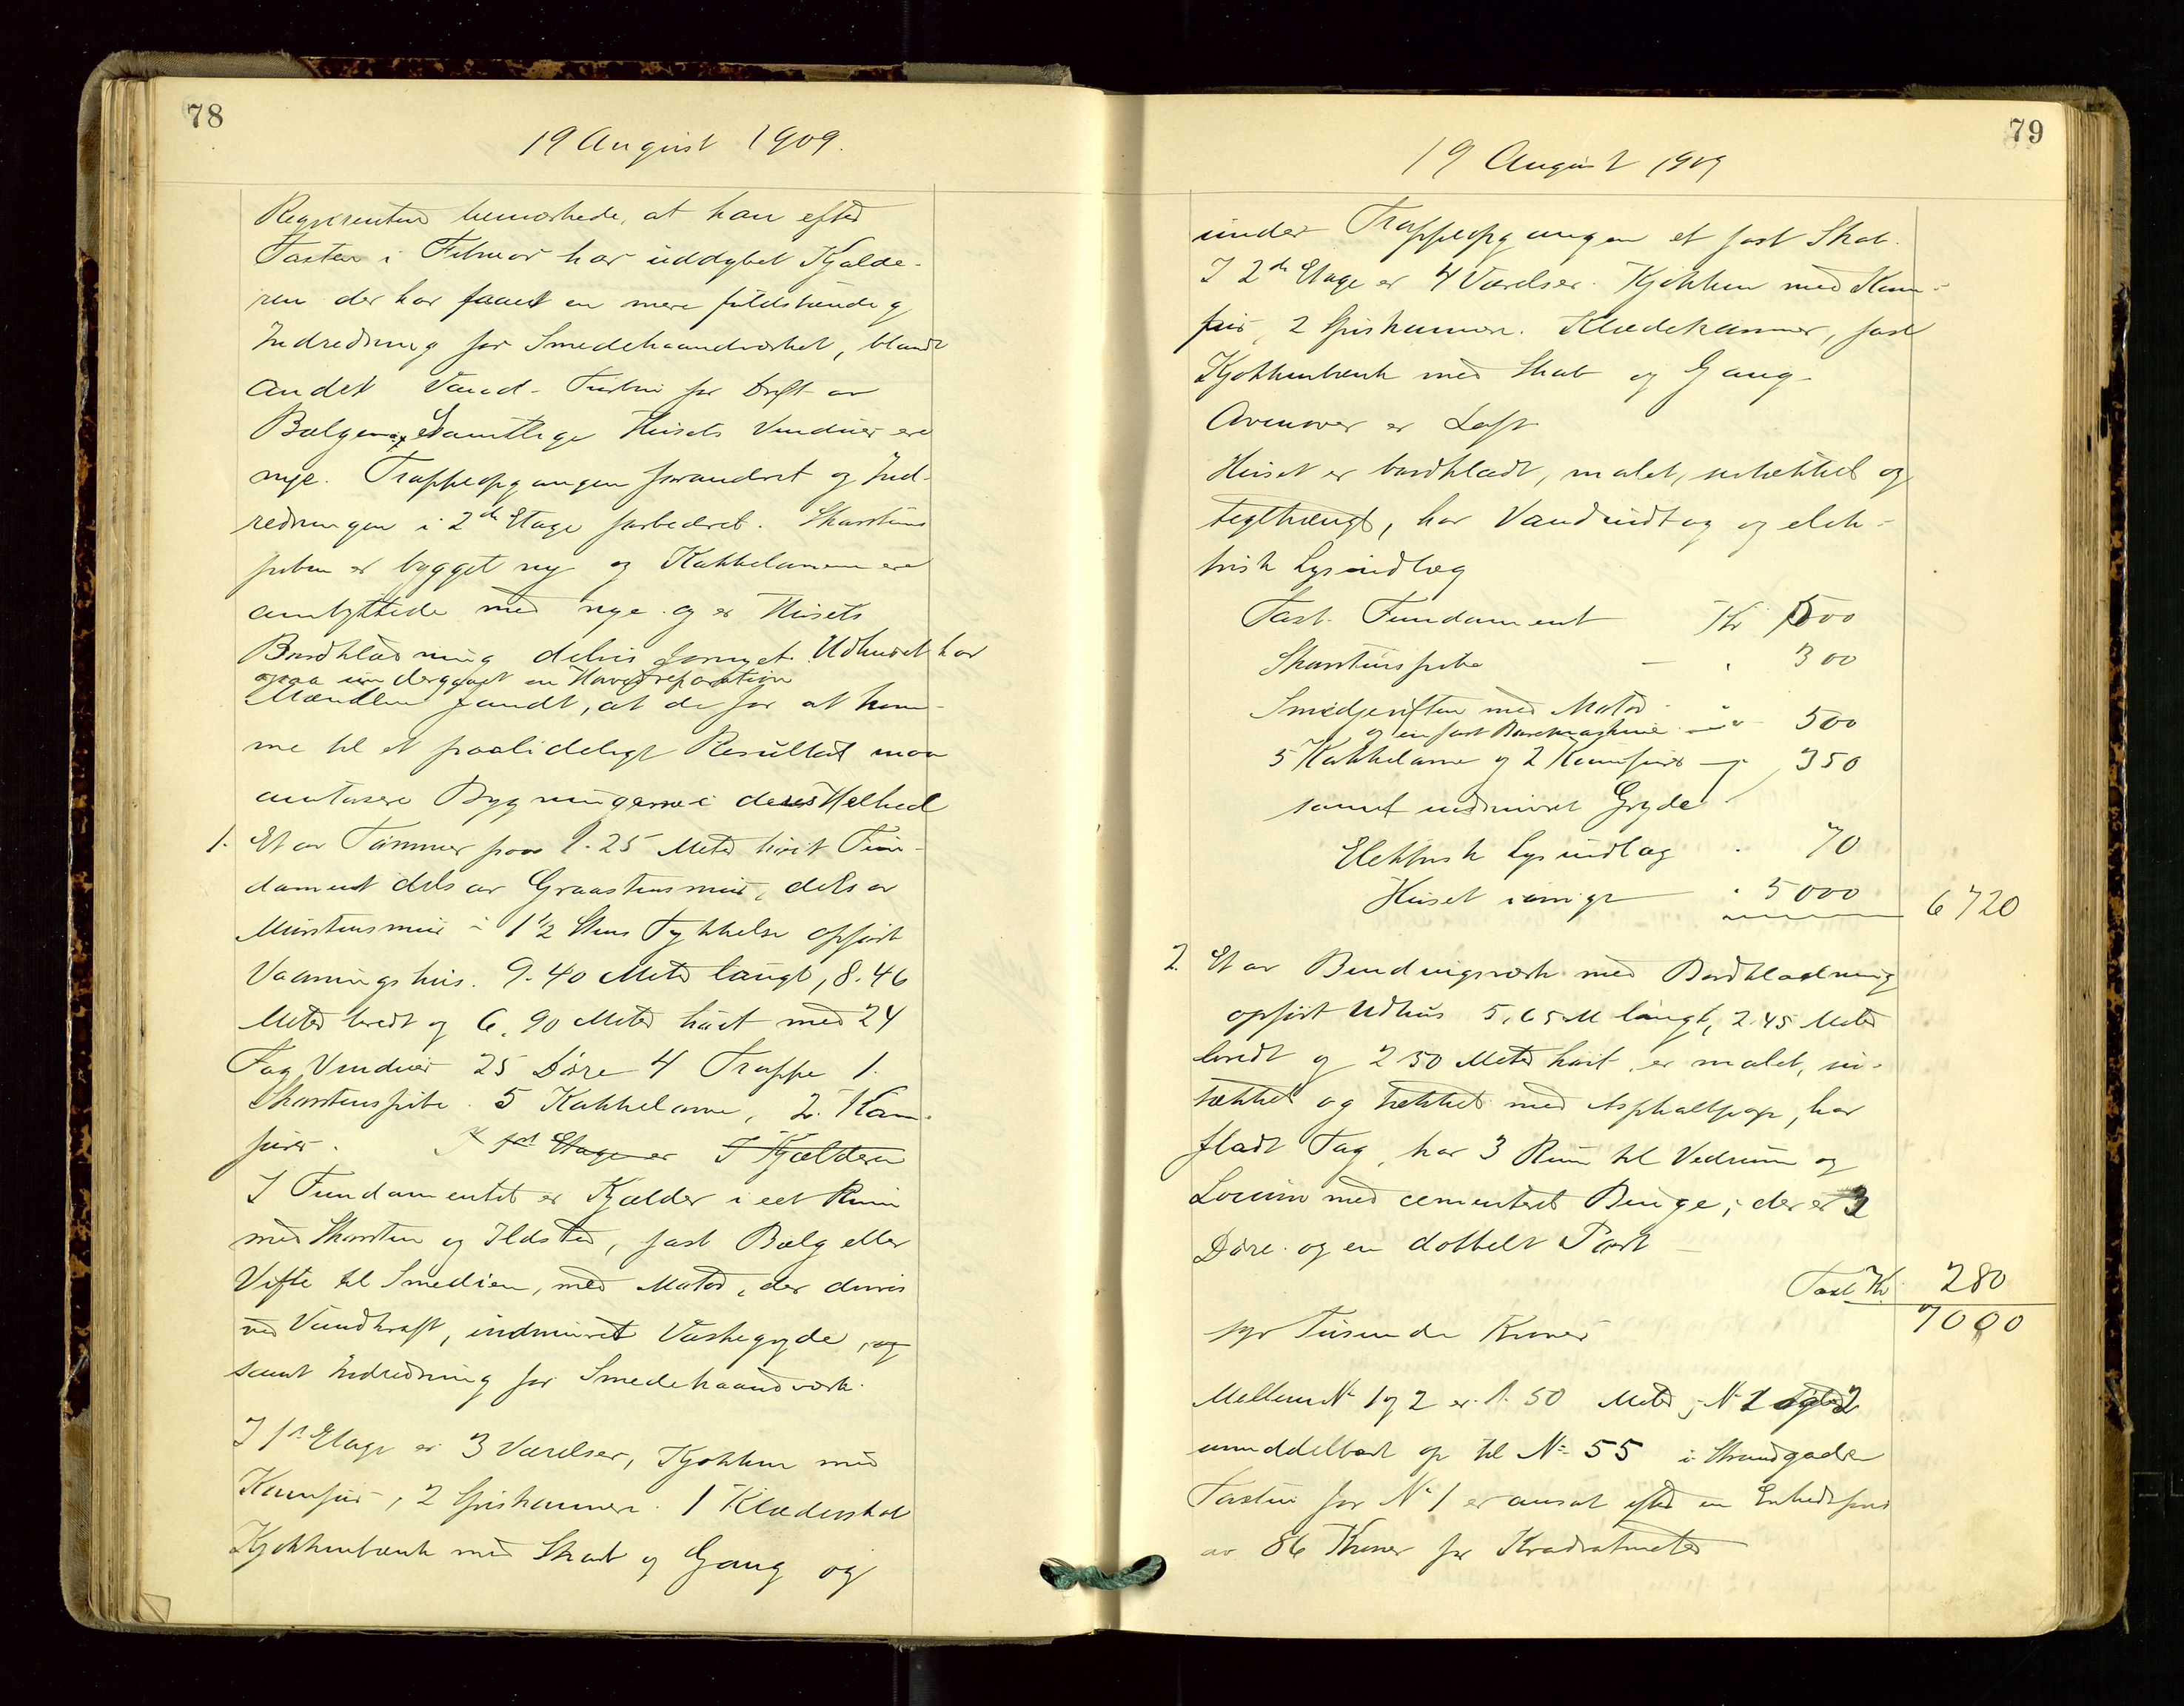 78
19 August 1909.
Reqvirenten bemærkede, at han efter
Taxten i Februar har uddybet Kjælde-
ren der har faaet en mere fuldstændig
Indredning for Smedehaandværket, blandt
andet Vand-Turbin for Drift av
Bælgen, Samtlige Husets Vinduer ere
nye. Trappeopgangen forandret og Ind-
redningen i 2den Etage forbedret. Skorstens
piben er bygget ny og Kakkelovnene ere
ombyttede med nye og er Husets
Bordklædning delvis fornyet. Udhuset har
ogsaa undergaaet en Hovedreparation
Mændene fandt, at de for at kom-
me til et paalideligt Resultat maa
omtaxere Bygningerne i deres Helhed
1. Et av Tømmer paa 1.25 Meter høit Fun-
dament dels av Graastensmur, dels av
Murstensmur i 1 1/2 Stens Tykkelse opført
Vaaningshus. 9.40 Meter langt, 8.46
Meter bredt og 6,90 Meter høit med 24
Fag Vinduer 25 Døre 4 Trappe 1.
Skorstenspibe. 5 Kakkelovne, 2 Kom-
furer. I 1ste Etage er I Kjælderen
I Fundamentet er Kjælder i eet Rum
med Skorsten og Ildsted, fast Bælg eller
Vifte til Smedien, med Motor, der drives
ved Vandkraft, indmuret Vaskegryde, og
samt Indredning for Smedehaandværk.
I 1ste Etage er 3 Værelser, Kjøkken med
Komfur, 2 Spiskammere. 1 Klædeskab
Kjøkkenbænk med Skab og Gang og
79
19 August 1909
under Trappeopgangen et fast Skab.
I 2den Etage er 4 Værelser. Kjøkken med Kom-
fur, 2 Spiskammere. Klædekammer, fast
Kjøkkenbænk med Skab og Gang.
Ovenover er Loft
Huset er bordklædt, malet, stækket og
teglhængt, har Vandindtag og elek-
trisk Lysindlæg
Taxt. Fundament Kr 500
Skorstenspibe - " 300
Smedjeviften med Motor
og en fast Boremaskine - " 500
5 Kakkelovne og 2 Komfurer - " 350
samt indmuret Gryde
Elektrisk Lysindlæg " 70
Huset iøvrigt " 5000 6720
2. Et av Bindingsværk med Bordklædning
opført Udhus 5,65 M langt, 2.45 Meter
bredt og 2 50 Meter høit, er malet,
tækket og tækket med Asphaltpap, har
fladt Tag, har 3 Rum til Vedrum og
Locum med cementeret Binge; der er 3
Døre og en dobbelt Port -
Taxt Kr 280
syv Tusinde Kroner 7000
Mellem No 1 og 2 er 1.50 Meter; No 1 og 2
umiddelbart op til No 55 i Strandgaden
Taxten for No 1 er ansat efter en Enhedspris
av 86 Kroner pr Kvadratmeter